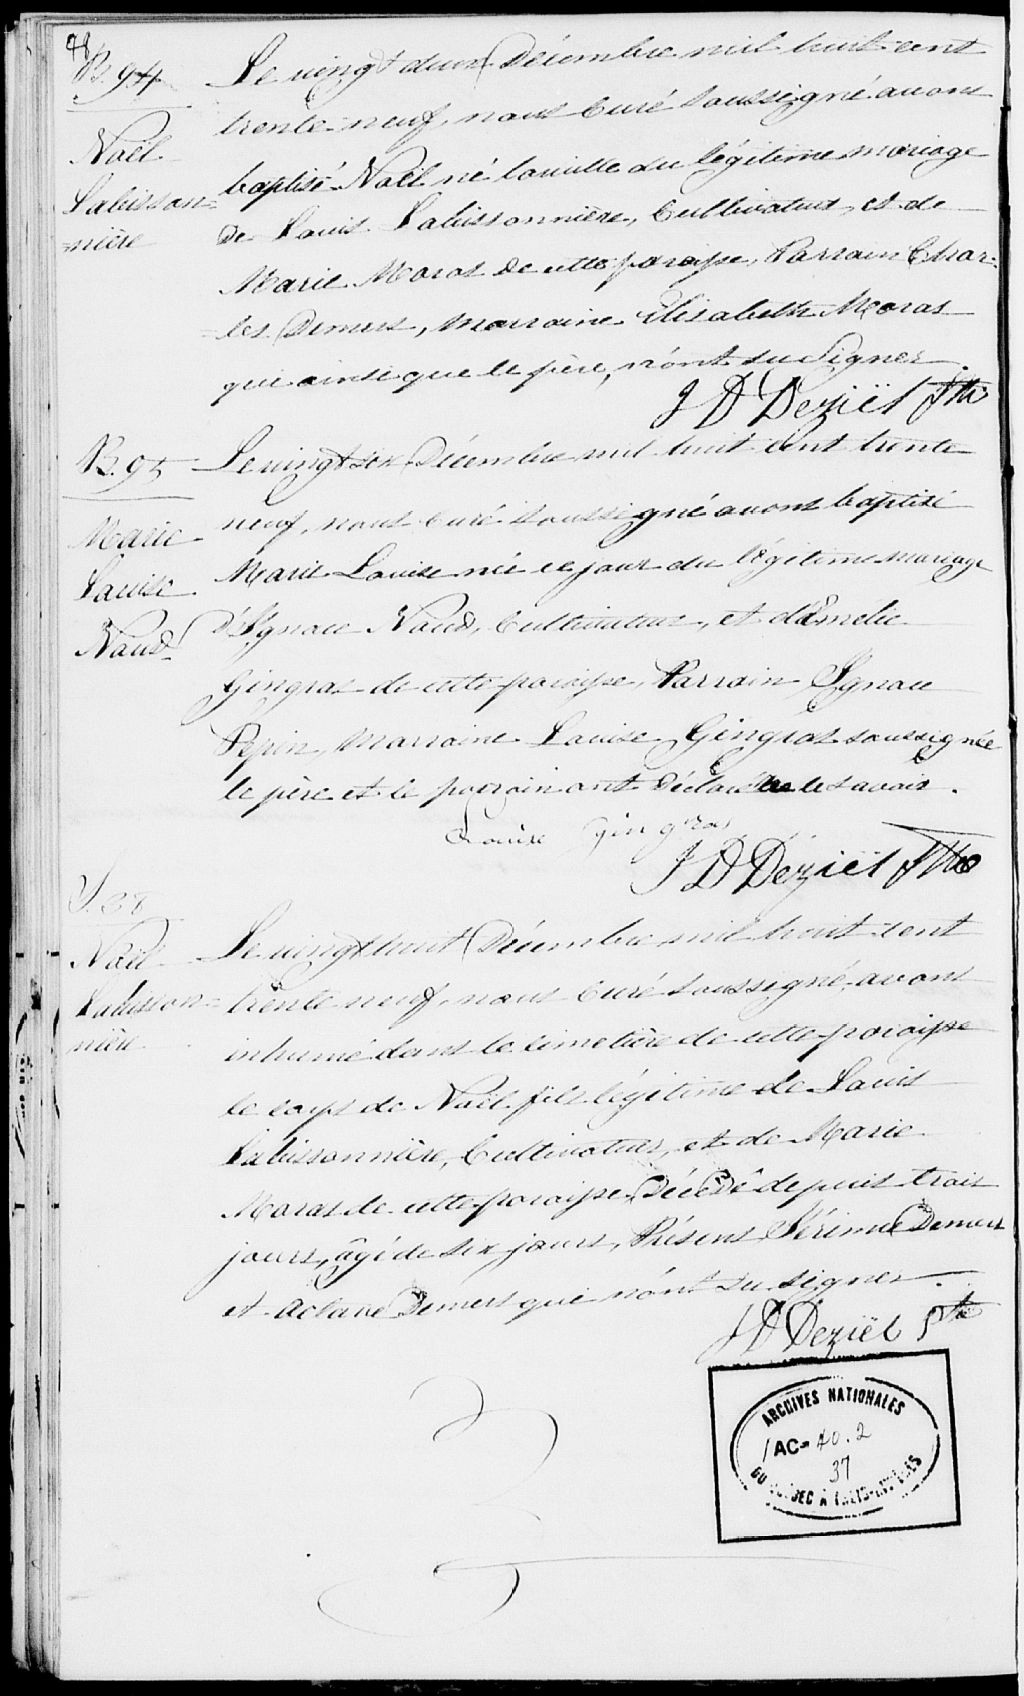 48
B. 94
Noël
Labisson=
=nière
Le vingt deux Décembre mil huit cent
trente neuf, nous Curé soussigné avons
baptisé Noël né la veille du légitime mariage
de Louis Labissonnière, Cultivateur, et de
Marie Moras de cette paroisse, Parrain Char=
les Demers, Marraine Elisabeth Moras
qui ainsi que le père, n'ont su signer
J D Deziël Ptre
B. 95
Marie
Louise
Naud
Le vingt six Décembre mil huit cent trente
neuf, nous Curé soussigné avons baptisé
Marie Louise née ce jour du légitime mariage
d'Ignace Naud, Cultivateur, et d'Emélie
Gingras de cette paroisse, Parrain Ignace
Pepin, Marraine Louise Gingras soussignée
le père et le parrain ont déclaré ne le savoir.
Louise Gingras
J D Deziël Ptre
S. 38
Noël
Labisson=
nière
Le vingt huit Décembre mil huit cent
trente neuf, nous Curé soussigné, avons
inhumé dans le cimetière de cette paroisse
le corps de Noël fils légitime de Louis
Labissonnière, Cultivateur, et de Marie
Moras de cette paroisse, Décédé depuis trois
jours, âgé de six jours, Présens Jérimie Demers
et Octave Demers qui n'ont su signer.
J D Deziël Ptre
ARCHIVES NATIONALES
1AC- 40.2
37
DU QUÉBEC À TROIS-RIVIÈRES